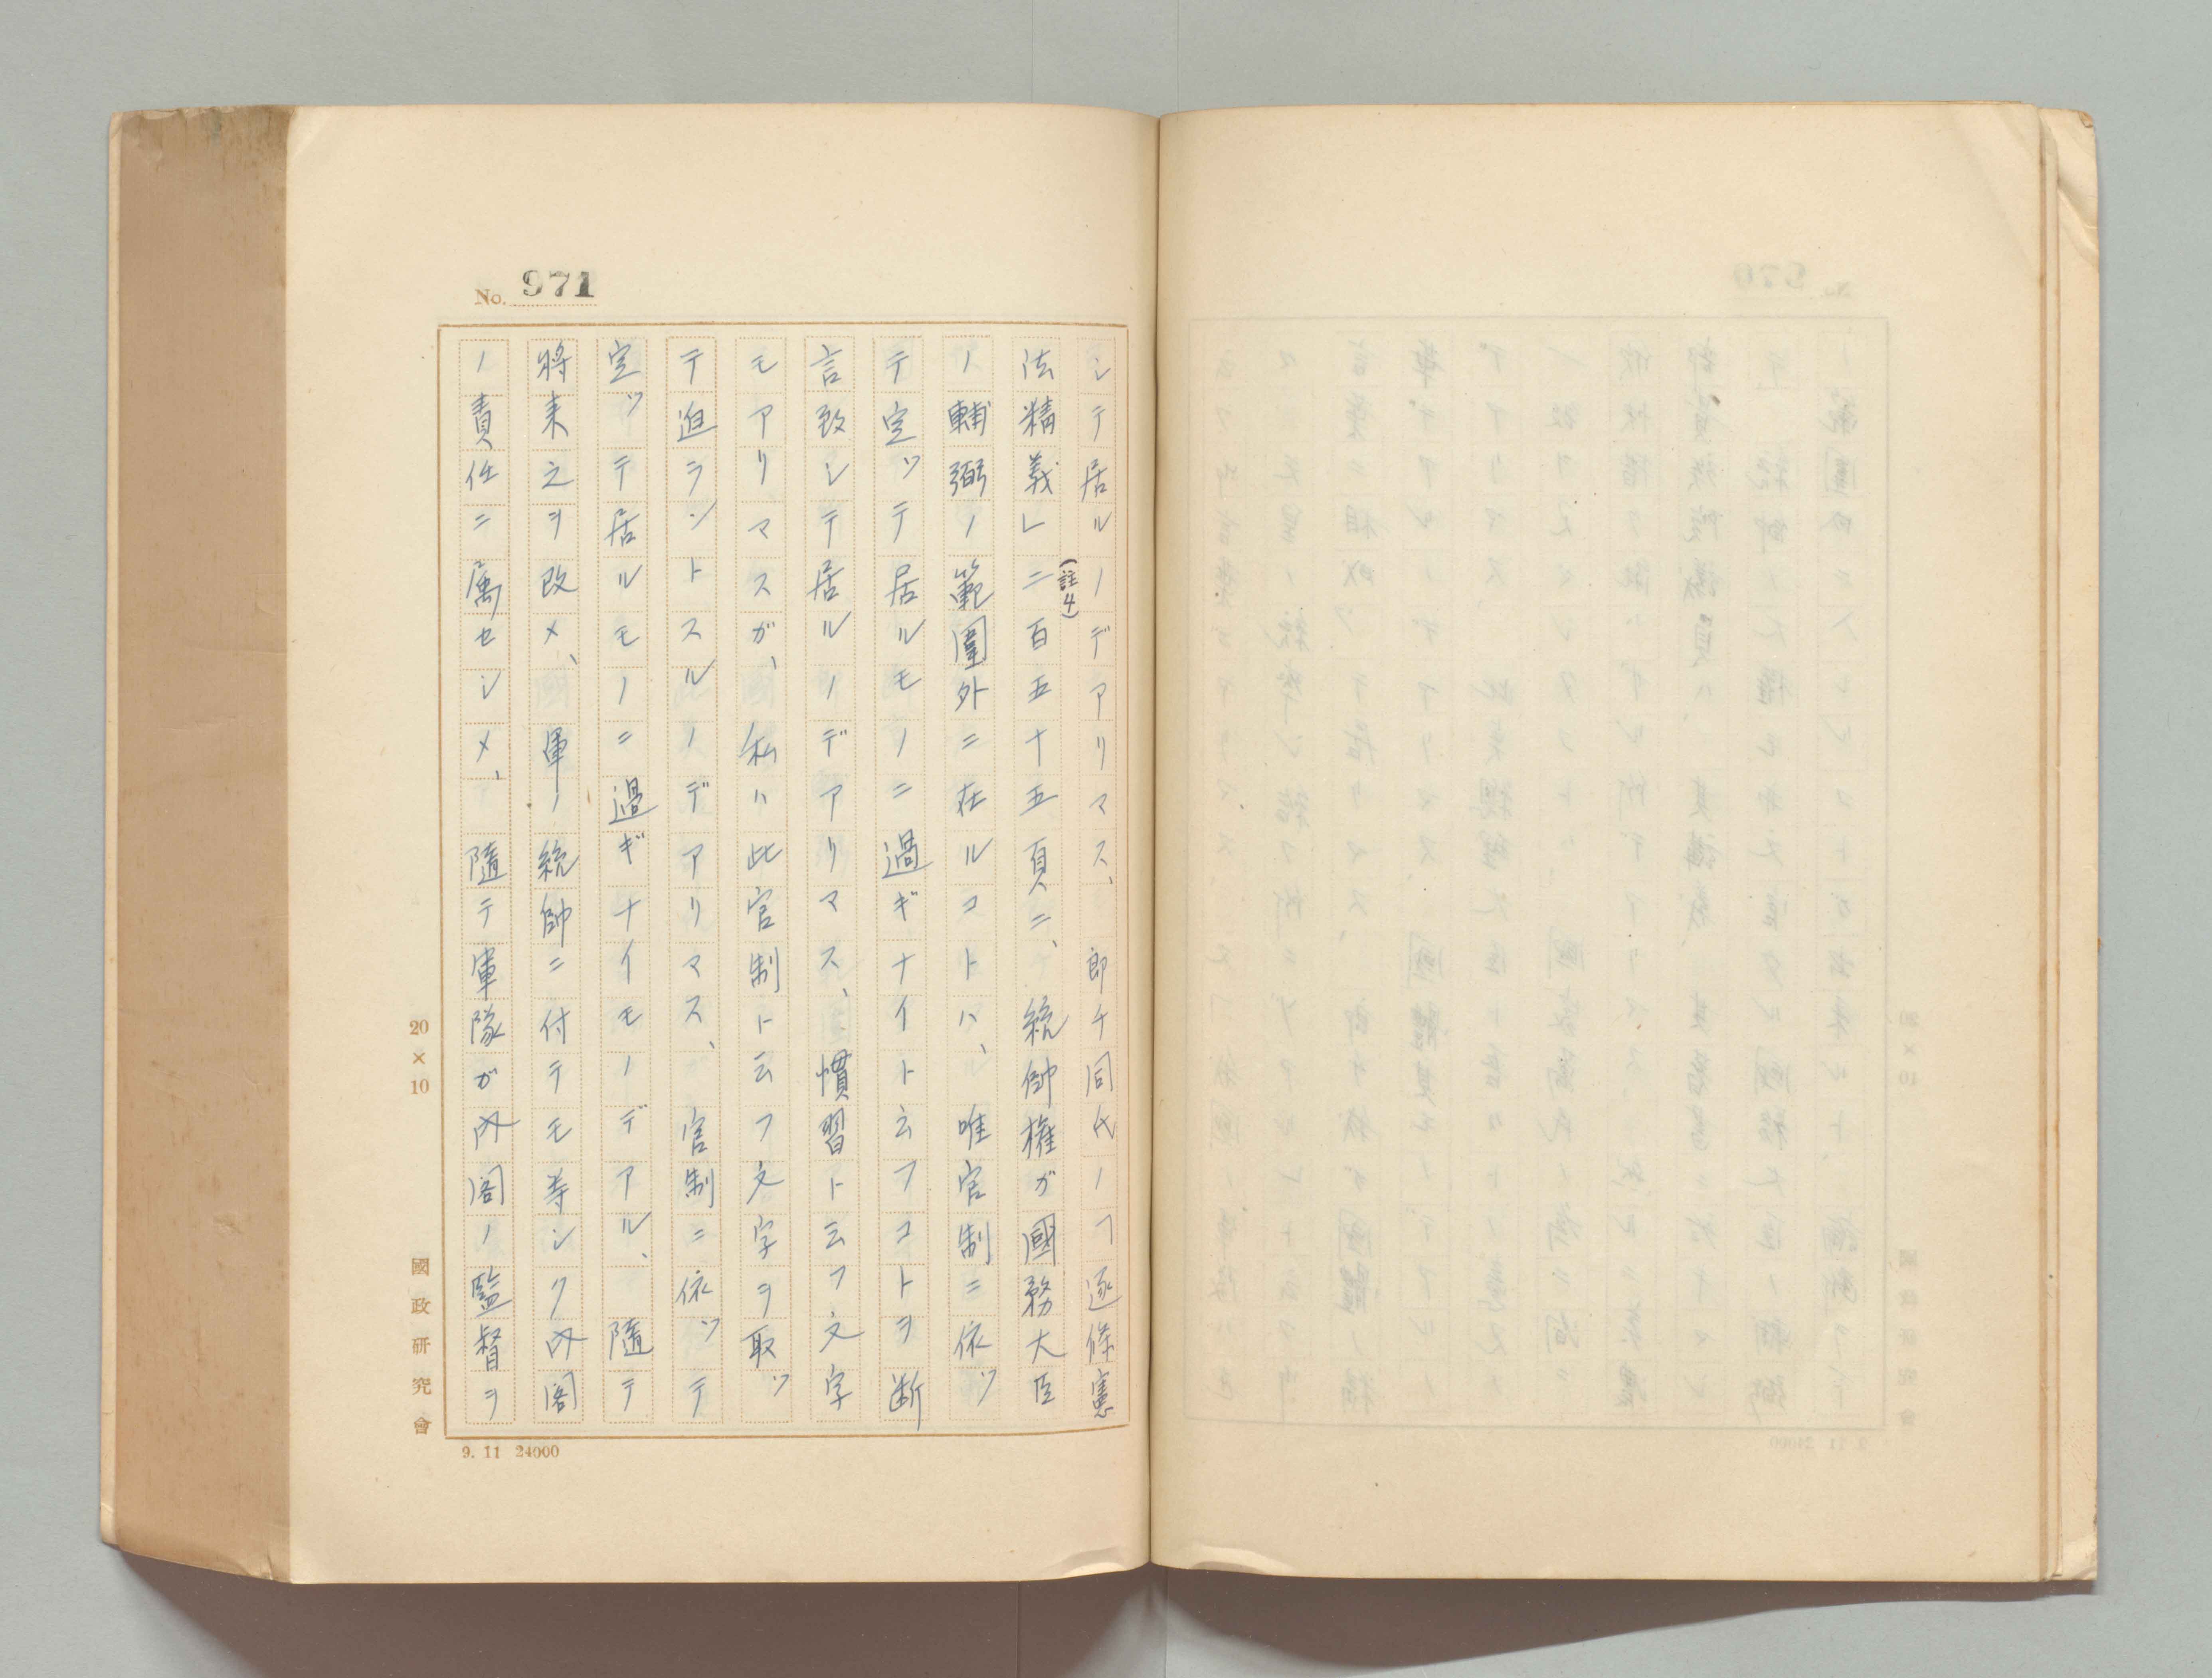 No. 971
シテ居ルノデアリマス、即チ同氏ノ「逐條憲
法精義」ニ百五十五頁ニ、統帥權ガ國務大臣
(註4)
ノ輔弼ノ範圍外ニ在ルコトハ、唯官制ニ依ツ
テ定ツテ居ルモノニ過ギナイト云フコトヲ断
言致シテ居ルノデアリマス、慣習ト云フ文字
モアリマスガ、私ハ此官制ト云フ文字ヲ取ツ
テ迫ラントスルノデアリマス、官制ニ依ツテ
定ツテ居ルモノニ過ギナイモノデアル、隨テ
將来之ヲ改メ、軍ノ統帥ニ付テモ等シク内閣
ノ責任ニ属セシメ、隨テ軍隊ガ内閣ノ監督ヲ
20×10
國政研究會
9. 11 24000